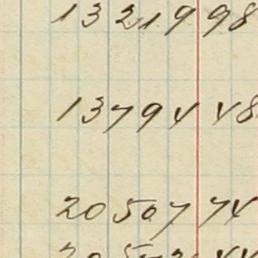 13219 98
13794 48
20567 74